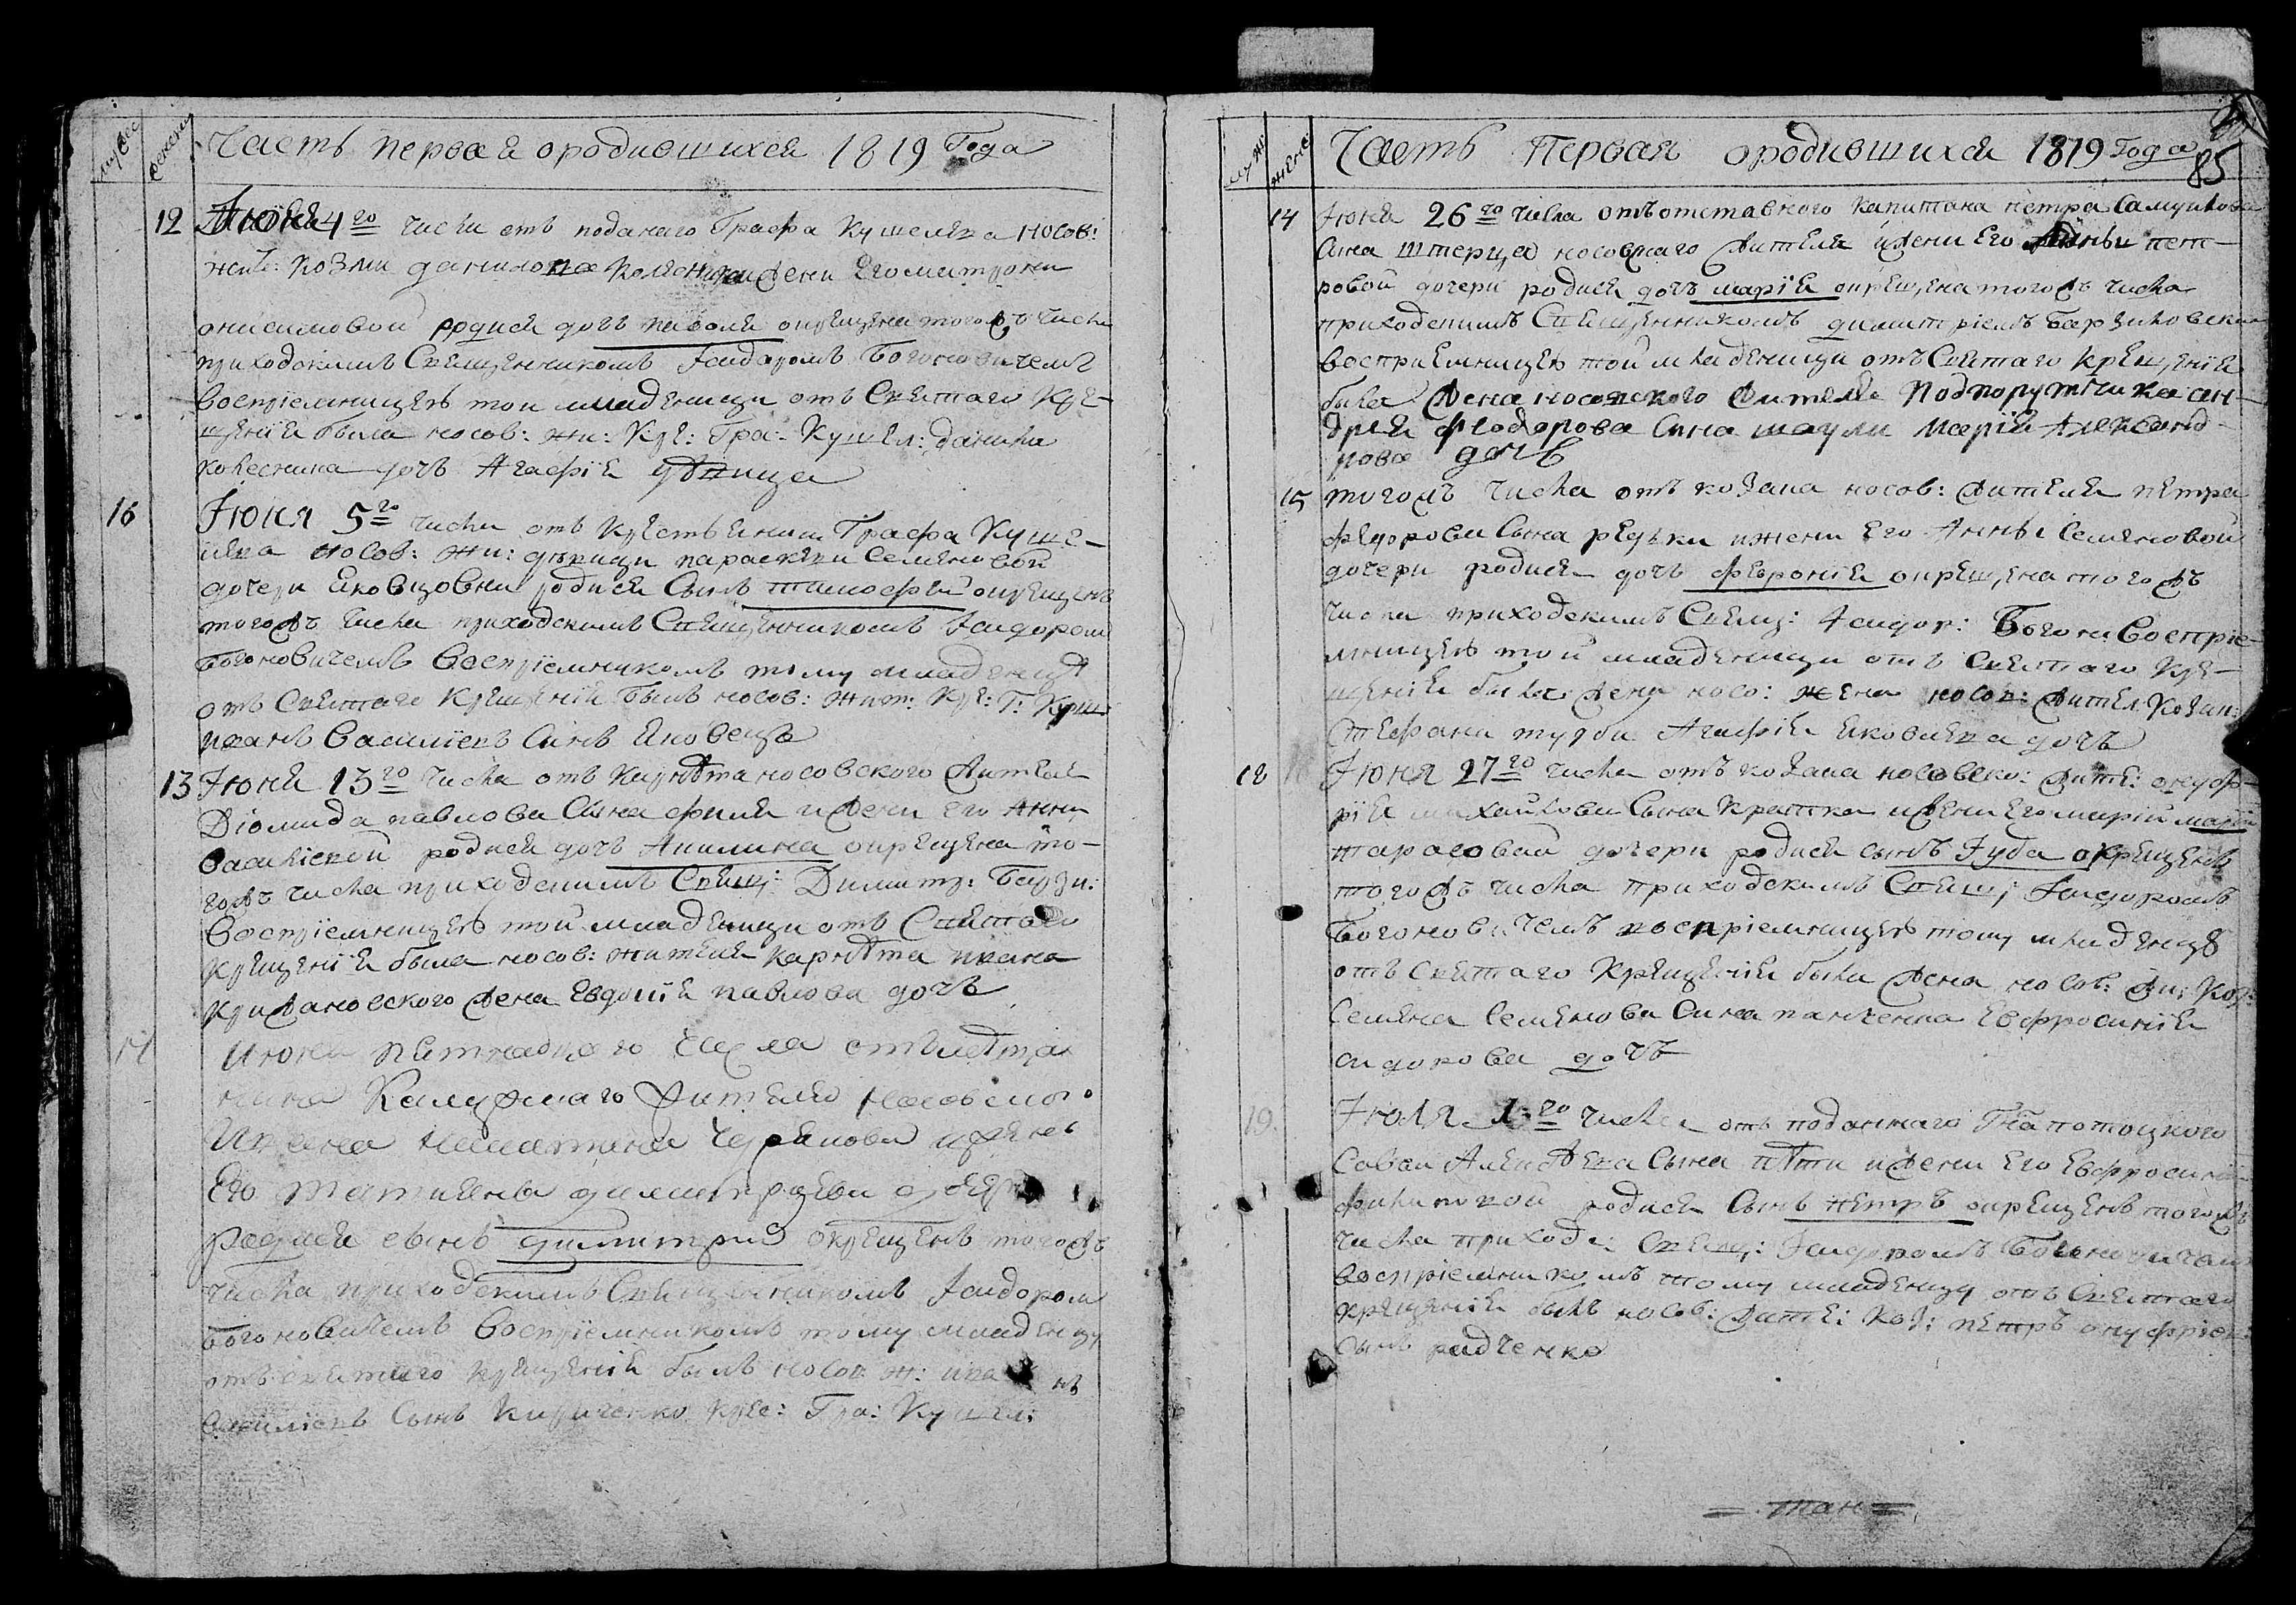 мужес
женска
Часть первая ородившихся 1819 Года
12 Июня 4го числа отъ поданаго Графа Кушелева Носов:
жит: Козми данилова колесника и жени Его матрони
онисимовои родися дочь окрещена того жъ числа
приходскимъ Священникомъ Їсидоромъ Богоновичемъ
Воспріемницею тои младеници отъ Святаго Кре-
щенїя была носов: жи: Кре: Гра: Кушел: данила
колесника дочь Агафія дѣвица
16 Їюня 5го числа отъ Крестьянина Графа Куше-
лева Носов: жи: дѣвици параскеви Семеновой
дочери Яковцовни родися Сынъ тимофей окрещенъ
того жъ числа приходскимъ Священникомъ Їсидоромъ
Богоновичемъ Воспріемникомъ тому младенцу
отъ Святаго Крещенія былъ носов: жит: Кре: Г: Куш:
Иванъ Василіевъ Синъ Яковецъ
13 Їюня 13го числа отъ Корнѣта носовского жителя
Діомида павлова Сына филя и жени его Анни
Василіевой родися дочь Акилина окрещена то-
гожъ числа приходскимъ Свящ: Димитр: Барзи:
Воспріемницею той младеници отъ Святаго
крещенїя была носов: жителя Карнѣта ивана
крижановского жена Евдокія павлова дочь
17 Июня пятнадцаго Числа отъ
Калужнаго жителя Носовскаго
Ивана и жены
Его Татияны димитрїевы дочери
родися сынъ димитрий окрещенъ тогожъ
числа приходскимъ Священникомъ Їсидоромъ
Богоновичемъ Воспріемникомъ тому младенцу
отъ святаго крещенія былъ носов: ж: иванъ
Василіевъ Сынъ Кириченко кре: Гра: Кушел:
муж
женс
Часть Первая ородившихся 1819 Года
85
14 Їюня 26го числа отъ отставного Капитана петра Самуилова
Сина Штерца носовскаго жителя и жени Его пет-
ровой дочери родися дочь марія окрещена того жъ числа
приходскимъ Священникомъ димитріемъ Барзиковски
воспріемницею той младеници отъ Святаго Крещенія
была жена носовского жителя Подпорутчика ан-
дрея феодорова Сина шаули Марія Александ-
рова дочь
15 тогожъ числа отъ козака носов: жителя петра
федорови Сына редьки и жени Его Анны Семеновой
дочери родися дочь февронїя окрещена того жъ
числа приходскимъ Свящ: Їсидор: Богон: Воспріе-
мницею той младеници отъ Святаго Кре-
щенія была жена носо: жена носов: жител: Козак:
Стефана турби Агафія яковлева дочь
18 Їюня 27го числа отъ козака носовско: жите: онуф-
рія михайлови Сына Кратка и жени Его марїи марїи
тарасовой дочери родися сынъ Їуда окрещенъ
того жъ числа приходскимъ Свящ: Їсидоромъ
Богоновичемъ воспріемницею тому младенцу
отъ Святаго Крещенїя была жена носов: жи: Коз:
Семена Семенова Сина панченка Евфросинія
сидорова дочь
19. Їюля 1го числа отъ поданнаго Г:на потоцкого
Савы Алексѣева Сына и жени Его Евфросинїи
филиповой родися Сынъ петръ окрещенъ тогожъ
числа приходс: Свящ: Їсидоромъ Богоновичемъ
воспріемникомъ тому младенцу отъ Святаго
крещенія былъ носов: жите: Коз: петръ онуфріев:
сынъ радченко
= тан =